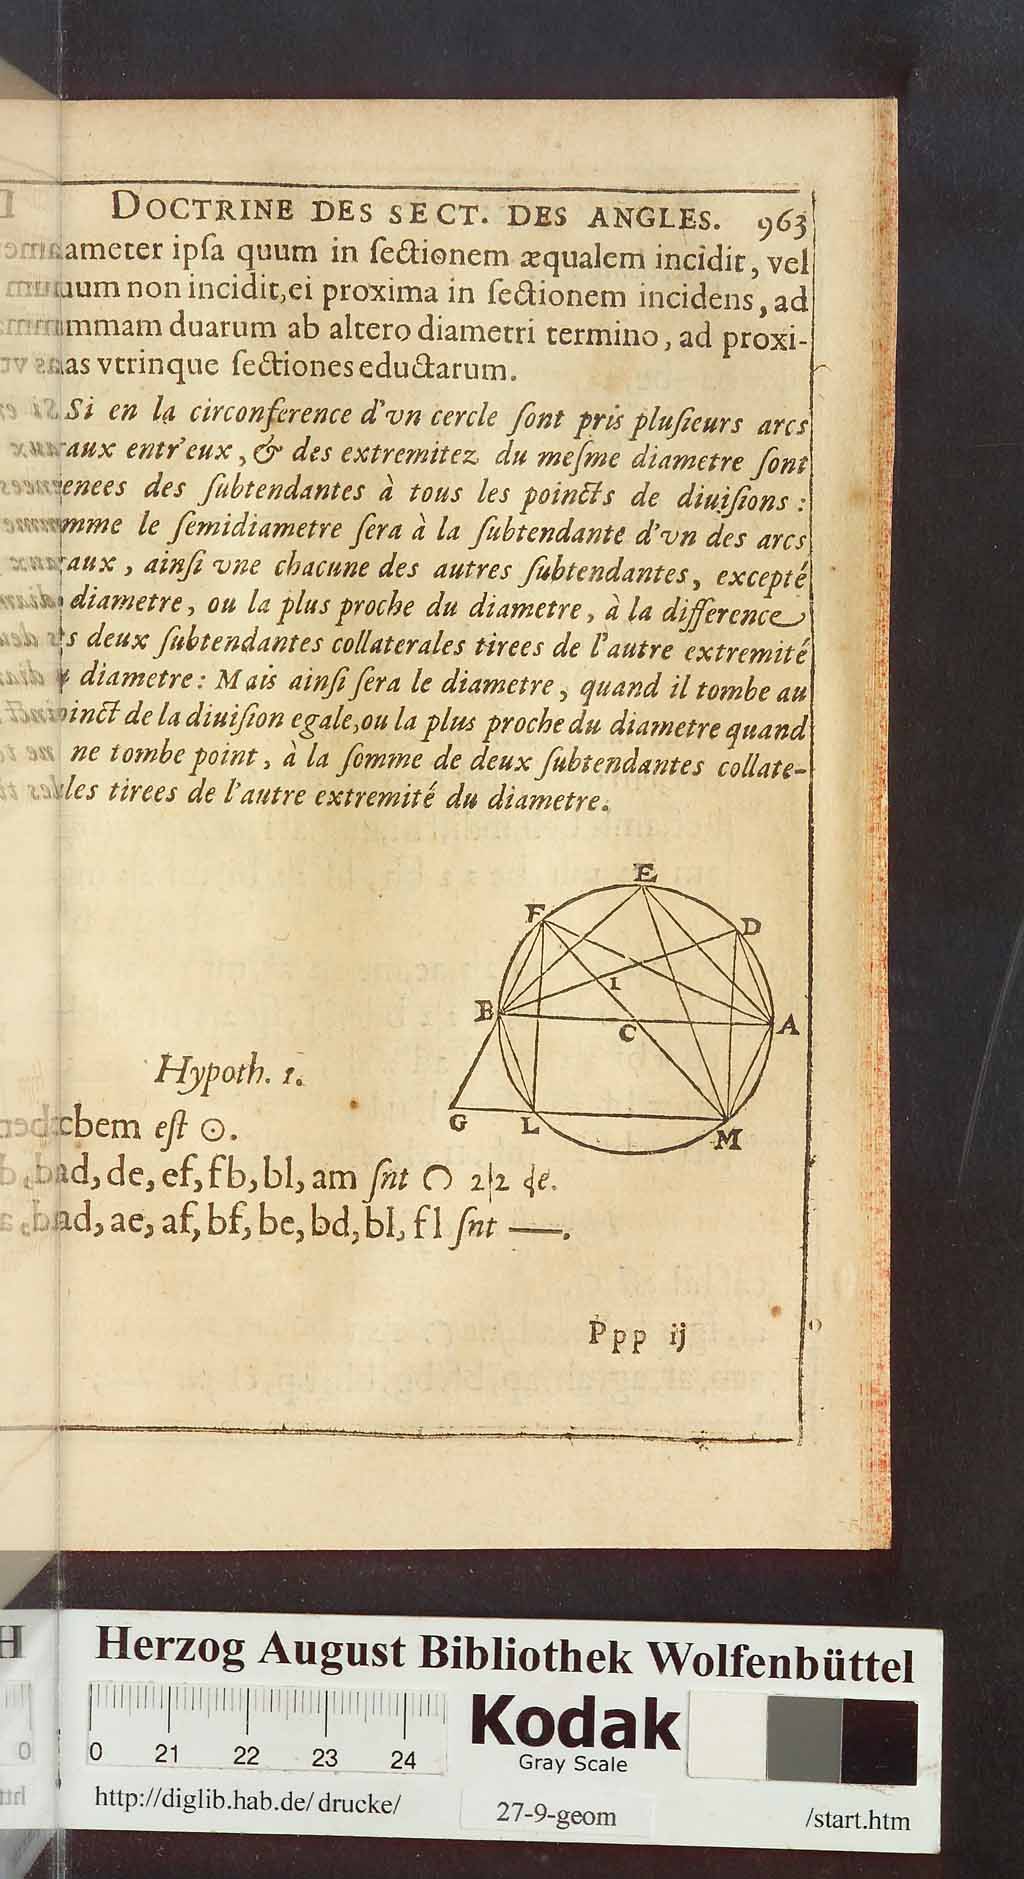 DOCTRINE DES SECT. DES ANGLES. 963
ameter ipſa quum in ſectionem æqualem incidit, vel
uum non incidit, ei proxima in ſectionem incidens, ad
mmam duarum ab altero diametri termino, ad proxi-
as vtrinque ſectiones eductarum.
Si en la circonference d'vn cercle ſont pris pluſieurs arcs
aux entr'eux, & des extremitez du meſme diametre ſont
enees des ſubtendantes à tous les poincts de diuiſions:
mme le ſemidiametre ſera à la ſubtendante d'vn des arcs
aux, ainſi vne chacune des autres ſubtendantes, excepté
diametre, ou la plus proche du diametre, à la difference
s deux ſubtendantes collaterales tirees de l'autre extremité
diametre: Mais ainſi ſera le diametre, quand il tombe au
inct de la diuiſion egale, ou la plus proche du diametre quand
ne tombe point, à la ſomme de deux ſubtendantes collate-
les tirees de l'autre extremité du diametre.
E
F
D
I
B
C
A
G
L
M
Hypoth. 1.
cbem eſt ⊙.
ad, de, ef, fb, bl, am ſnt ∩ 2|2 de.
ad, ae, af, bf, be, bd, bl, fl ſnt —.
Ppp ij
Herzog August Bibliothek Wolfenbüttel
0 21 22 23 24
Kodak
Gray Scale
http://diglib.hab.de/drucke/ 27-9-geom /start.htm